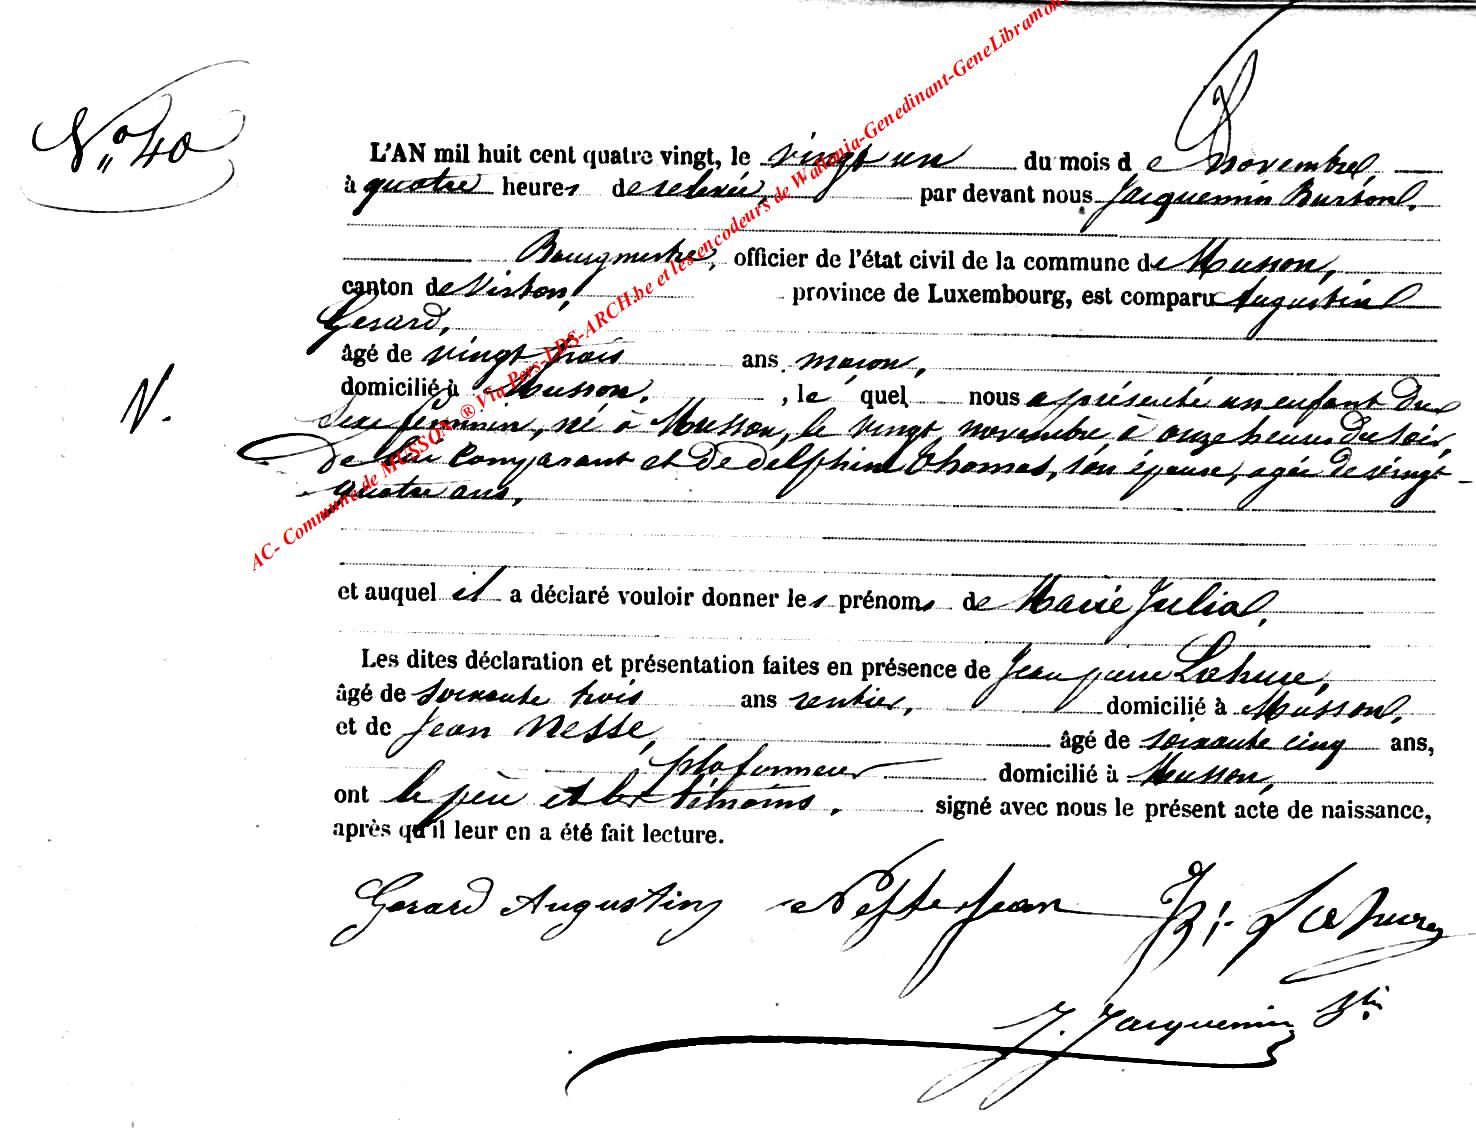 N° 40
L'AN mil huit cent quatre vingt, le vingt un du mois de novembre,
à quatre heures de relevée, par devant nous Jacquemin
Bourgmestre, officier de l'état civil de la commune de Musson,
canton de Virton, province de Luxembourg, est comparu Augustin
Gerard,
âgé de vingt trois ans, maçon,
domicilié à Musson, le quel nous a présenté un enfant du
sexe féminin, né à Musson, le vingt novembre à onze heures du soir,
de lui comparant et de delphine thomas, son épouse, agée de vingt
quatre ans,
et auquel il a déclaré vouloir donner les prénoms de Marie Julia,
Les dites déclaration et présentation faites en présence de Jean pierre Lahure,
âgé de soixante trois ans rentier, domicilié à Musson,
et de Jean Nesse, âgé de soixante cinq ans,
plafonneur domicilié à Musson,
ont le père et les témoins, signé avec nous le présent acte de naissance,
après qu'il leur en a été fait lecture.
N.
Gerard Augustin Jean Lahure
J. Jacquemin
AC- Commune de MUSSON ® Via Pers-LDS-ARCH.be et les encodeurs de Wallonia-Genedinant-GeneLibramont